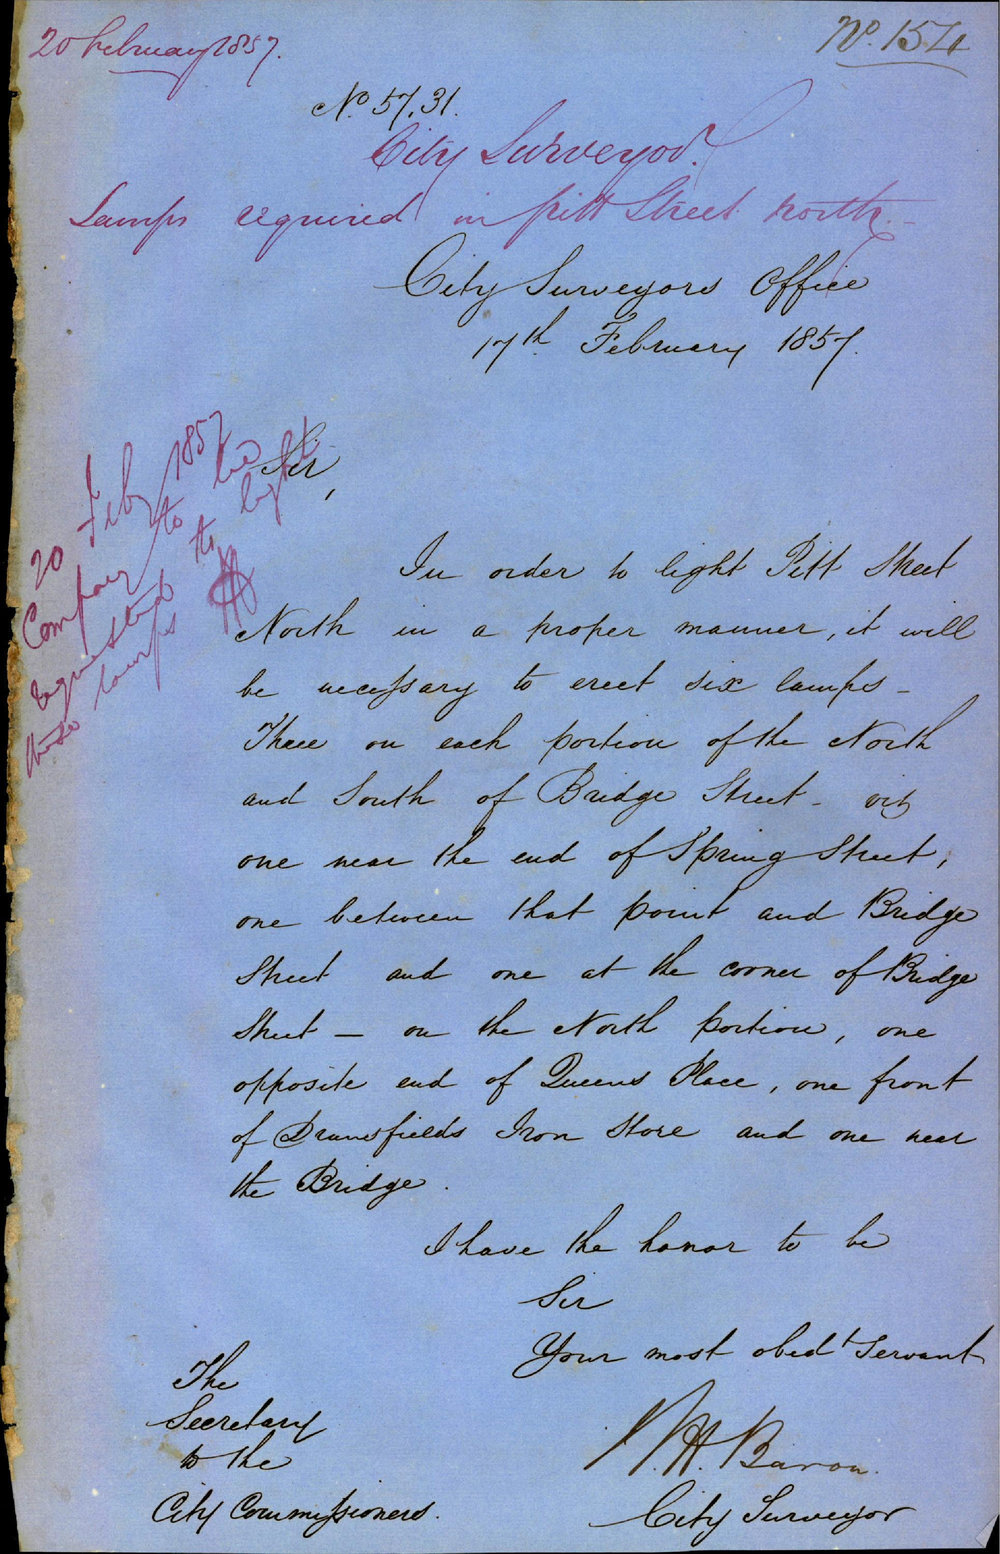 20 February 1857.
No. 154
No. 57.31.
City Surveyor.
Lamps required in pitt Street north. -
City Surveyors Office
17th February 1857.
20 Feby 1857
Company to be
requested to light
these lamps
Sir,
In order to light Pitt Street
North in a proper manner, it will
be necessary to erect six lamps -
Three on each portion of the North
and South of Bridge Street - viz
one near the end of Spring Street,
one between that point and Bridge
Street and one at the corner of Bridge
Street - on the North portion, one
opposite end of Queens Place, one front
of Dransfields Iron Store and one near
the Bridge.
I have the honor to be
Sir
Your most obedt Servant
H. Baron.
City Surveyor
The
Secretary
to the
City Commissioners.